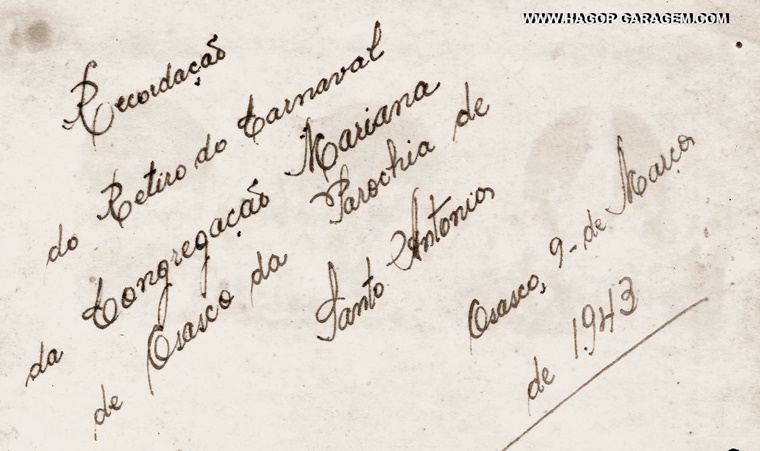 WWW.HAGOP GARAGEM.COM
Recordação
do Retiro do Carnaval
da Congregação Mariana
de Osasco da Parochia de
Santo Antonio
Osasco, 9-de Março
de 1943